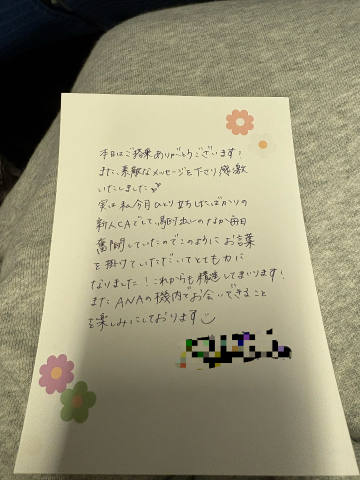 本日はご搭乗ありがとうございます!
また、素敵なメッセージを下さり感激
いたしました
実は私、今月ひとり立ちしたばかりの
新人CAでして、駆け出しのなか毎日
奮闘していたのでこのようにお言葉
を掛けていただいてとても力に
なりました!これからも精進してまいります!
またANAの機内でお会いできること
を楽しみにしております